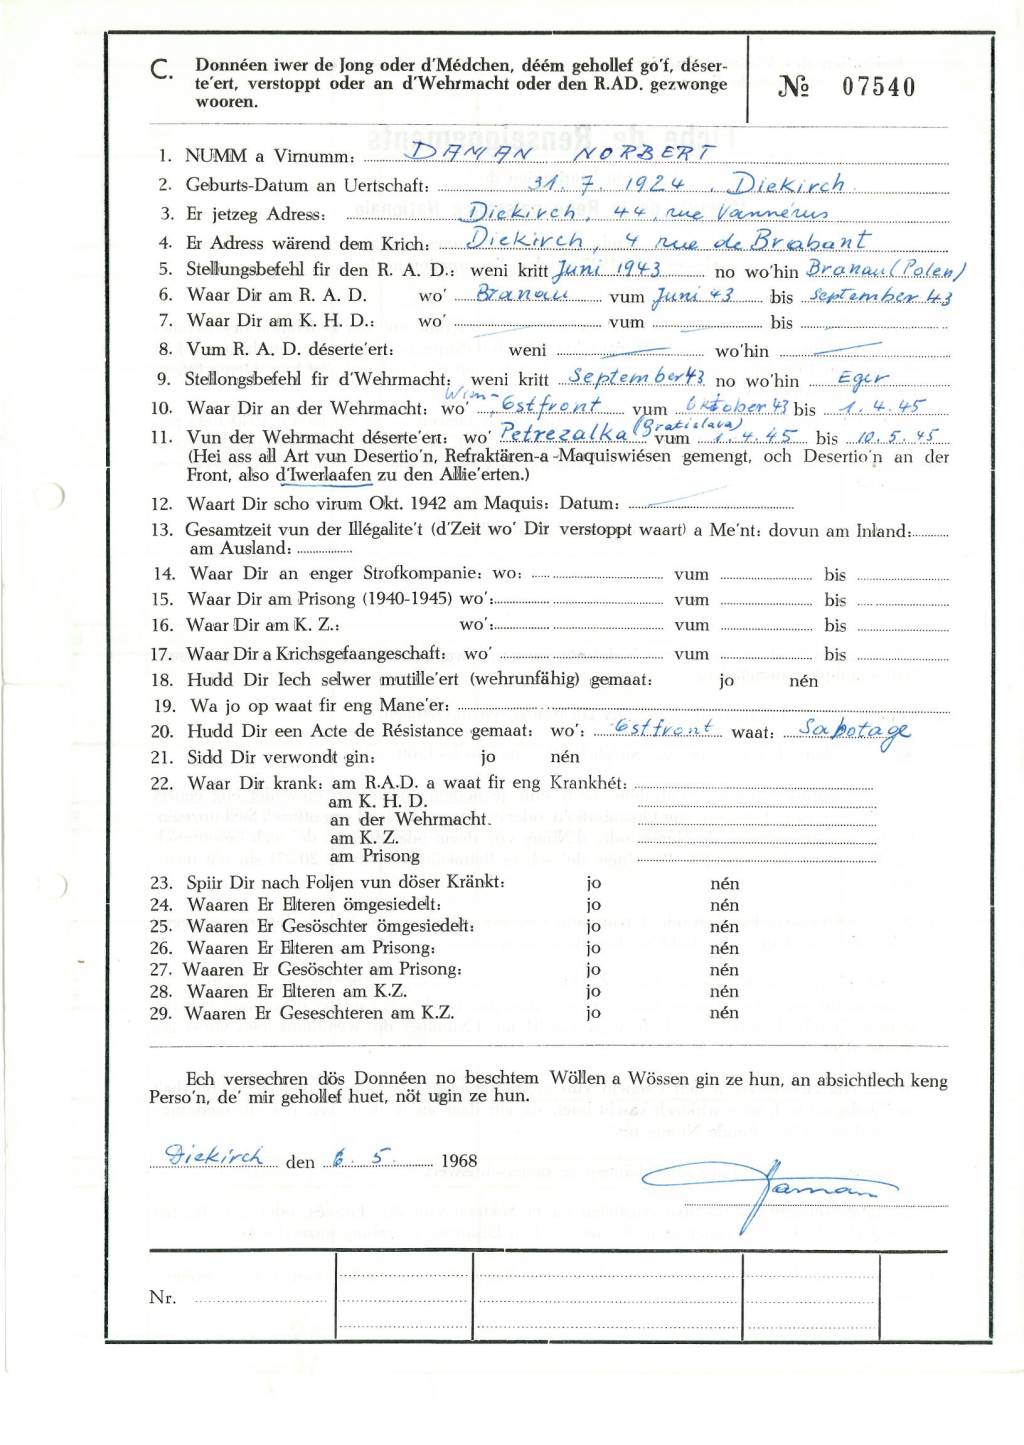 C. Donnéen iwer de Jong oder d'Médchen, déém gehollef go'f, déser-
te'ert, verstoppt oder an d'Wehrmacht oder den R.AD. gezwonge
wooren.
№ 07540
1. NUMM a Virnumm: DAMAN NORBERT
2. Geburts-Datum an Uertschaft: 31. 7. 1924 . Diekirch.
3. Er jetzeg Adress: Diekirch, 44, rue Vannérus
4. Er Adress wärend dem Krich: Diekirch, 4 rue de Brabant
5. Stellungsbefehl fir den R. A. D.: weni kritt Juni 1943 no wo'hin Branau (Polen)
6. Waar Dir am R. A. D. wo' Branau vum Juni 43 bis September 43
7. Waar Dir am K. H. D.: wo' vum bis
8. Vum R. A. D. déserte'ert: weni wo'hin
9. Stellongsbefehl fir d'Wehrmacht: weni kritt September 43 no wo'hin Eger
10. Waar Dir an der Wehrmacht: wo' Ostfront vum Oktober 43 bis 1. 4. 45
11. Vun der Wehrmacht déserte'ert: wo' Petrezalka (Bratislava) vum 1. 4. 45 bis 10. 5. 45
(Hei ass all Art vun Desertio'n, Refraktären-a-Maquiswiésen gemengt, och Desertio'n an der
Front, also d'Iwerlaafen zu den Allie'erten.)
12. Waart Dir scho virum Okt. 1942 am Maquis: Datum:
13. Gesamtzeit vun der Illégalite't (d'Zeit wo' Dir verstoppt waart) a Me'nt: dovun am Inland:
am Ausland:
14. Waar Dir an enger Strofkompanie: wo: vum bis
15. Waar Dir am Prisong (1940-1945) wo': vum bis
16. Waar Dir am K. Z.: wo': vum bis
17. Waar Dir a Krichsgefaangeschaft: wo' vum bis
18. Hudd Dir Iech selwer mutille'ert (wehrunfähig) gemaat: jo nén
19. Wa jo op waat fir eng Mane'er:
20. Hudd Dir een Acte de Résistance gemaat: wo': Ostfront waat: Sabotage
21. Sidd Dir verwondt gin: jo nén
22. Waar Dir krank: am R.A.D. a waat fir eng Krankhét:
am K. H. D.
an der Wehrmacht.
am K. Z.
am Prisong
23. Spiir Dir nach Foljen vun döser Kränkt: jo nén
24. Waaren Er Elteren ömgesiedelt: jo nén
25. Waaren Er Gesöschter ömgesiedelt: jo nén
26. Waaren Er Elteren am Prisong: jo nén
27. Waaren Er Gesöschter am Prisong: jo nén
28. Waaren Er Elteren am K.Z. jo nén
29. Waaren Er Geseschteren am K.Z. jo nén
Ech versechren dös Donnéen no beschtem Wöllen a Wössen gin ze hun, an absichtlech keng
Perso'n, de' mir gehollef huet, nöt ugin ze hun.
Diekirch den 6. 5. 1968
Daman
Nr.